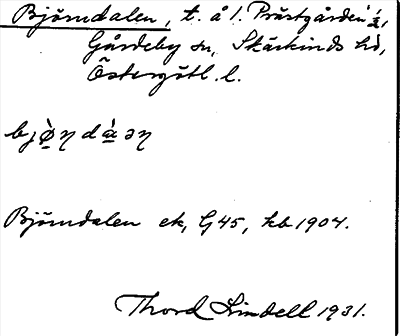 Björndalen, t. å l. Prästgården 1/2,
Gårdeby sn, Skärkinds hd,
Östergötl. l.
bjø̀ŋdàəŋ
Björndalen ek, G45, kb 1904.
Thord Lindell 1931.